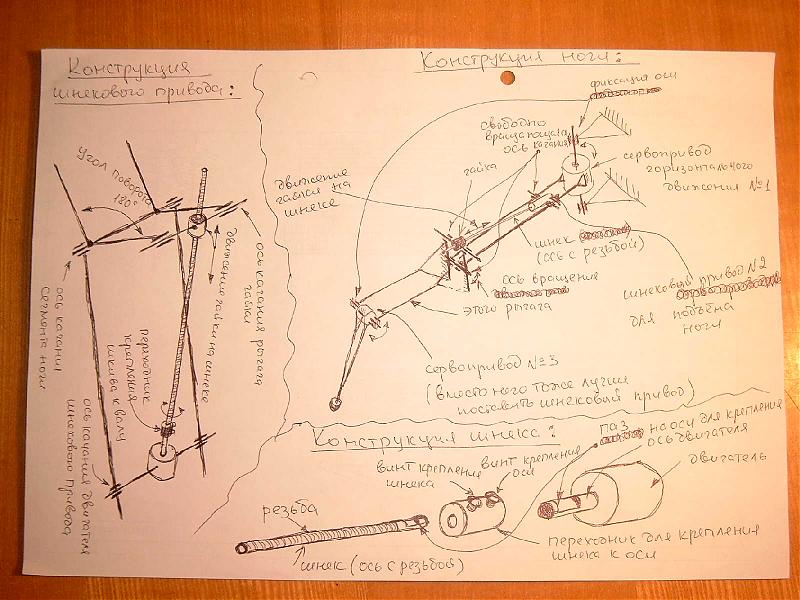 Конструкция
шнекового привода:
угол поворота
180°
ось качания
сегмента ноги
переходник
крепления
шкива к валу
движение гайки на шнеке
ось качания рычага
гайки
ось качания двигателя
шнекового привода
Конструкция ноги:
фиксация оси
свободно
вращающаяся
ось качания
гайка
движение
гайки на
шнеке
сервопривод
горизонтального
движения №1
шнек
(ось с резьбой)
ось вращения
этого рычага
шнековый привод №2
для подъёма
ноги
сервопривод №3
(вместо него тоже лучше
поставить шнековый привод)
Конструкция шнека:
паз на оси для крепления
ось двигателя
двигатель
винт крепления
шнека
винт крепления
оси
резьба
шнек (ось с резьбой)
переходник для крепления
шнека к оси